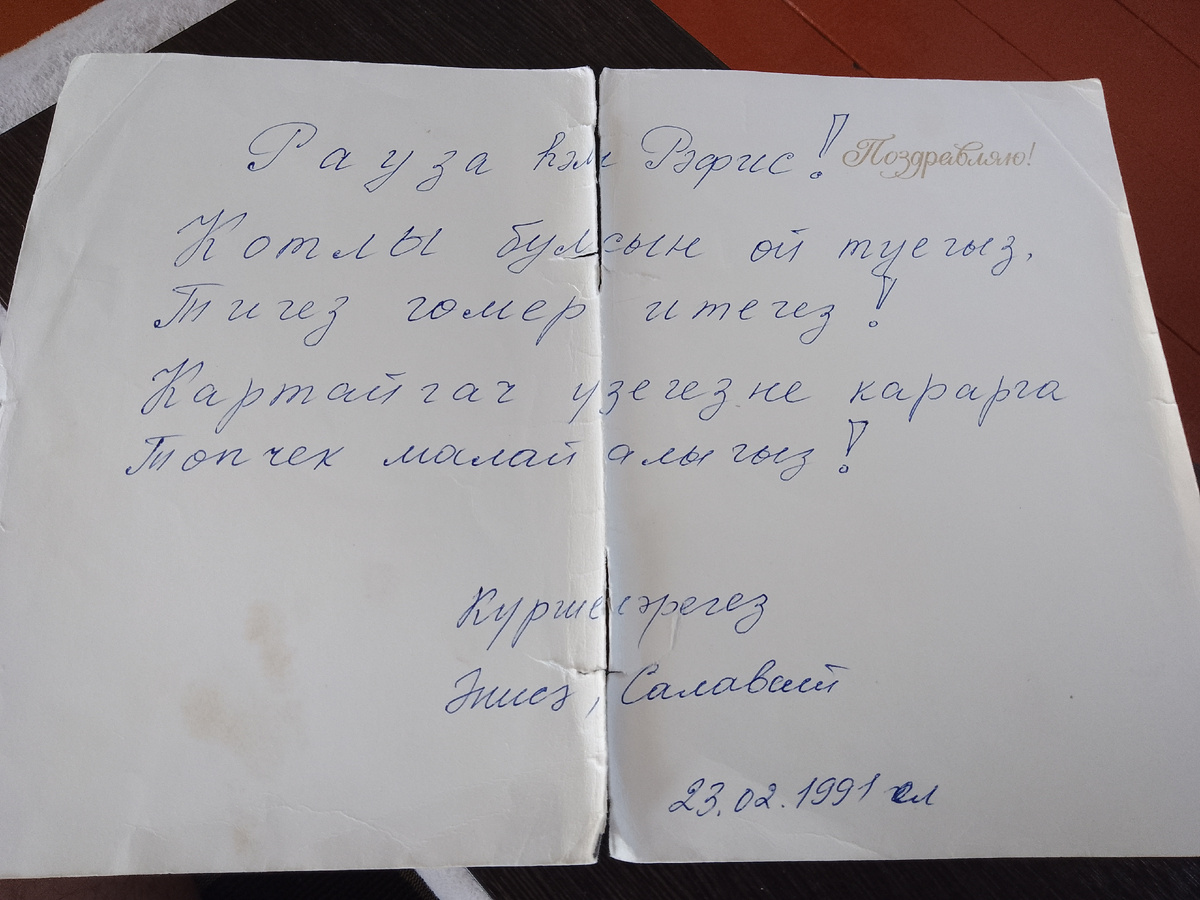 Рауза һәм Рәфис! Поздравляю!
Котлы булсын ой туегыз,
Тигез гомер итегез!
Картайгач узегезне карарга
Топчек малай алыгыз!
Куршеләрегез
Әнисә, Салават
23.02.1991 ел